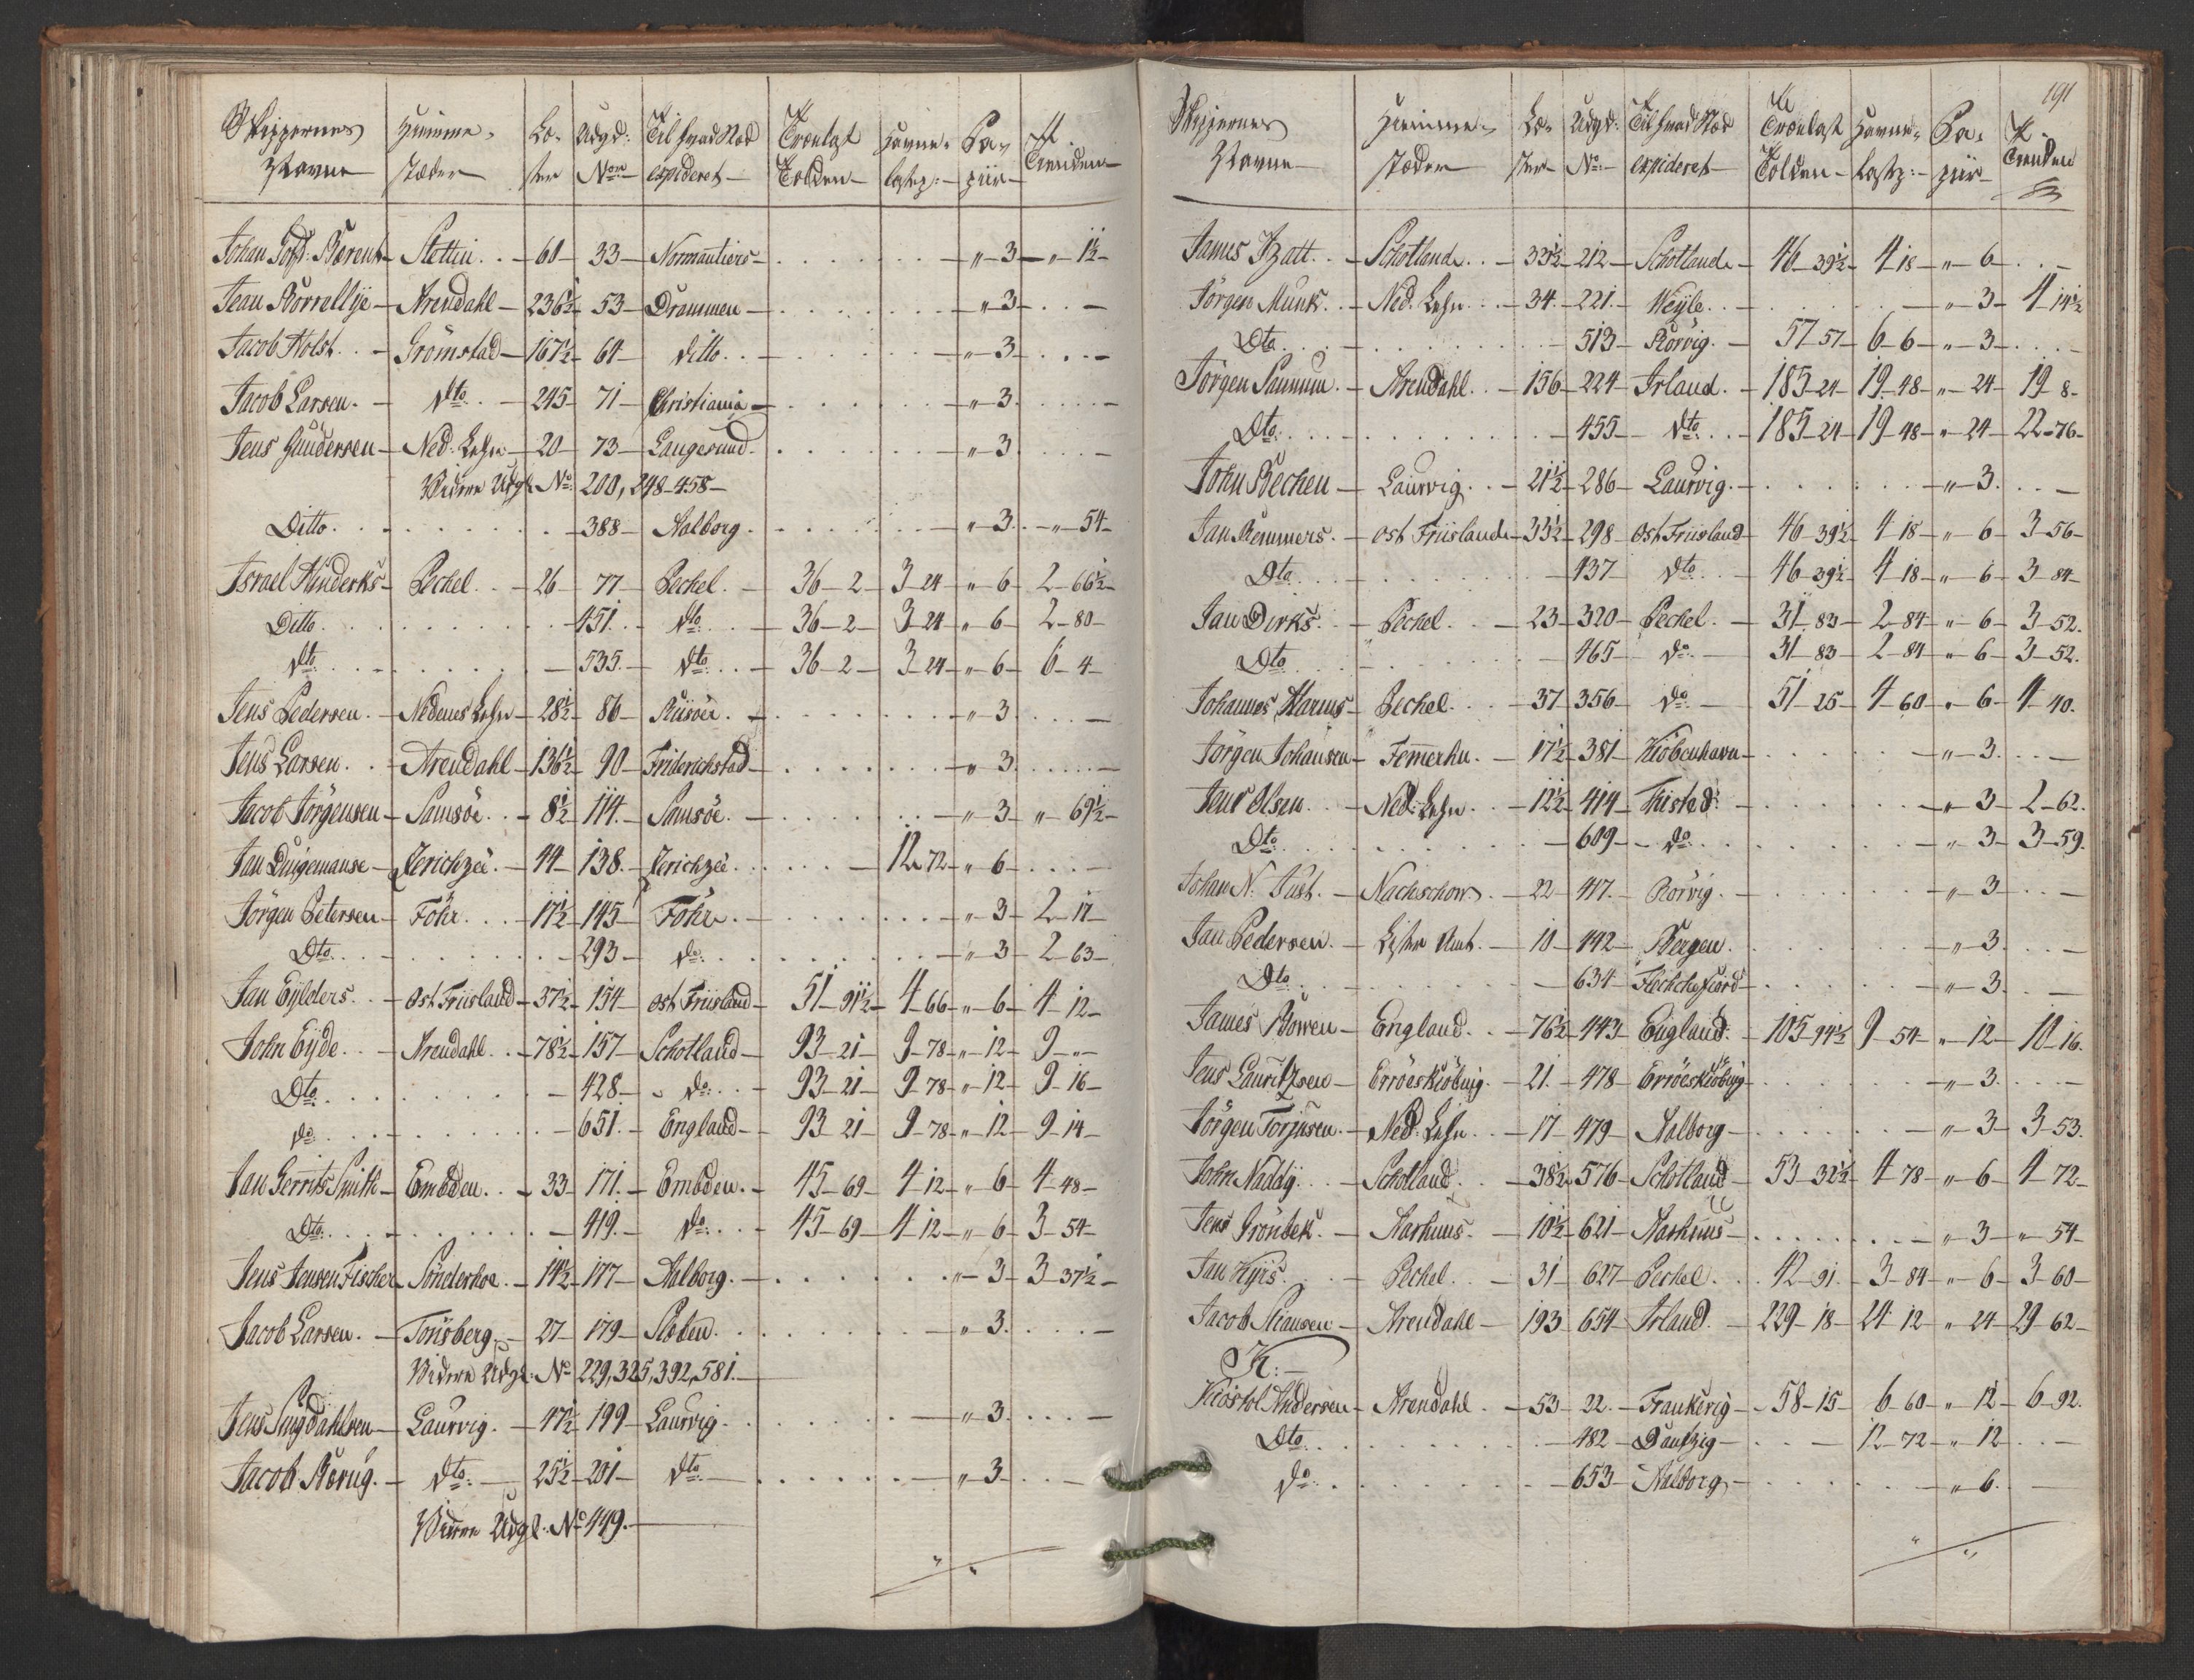 Skippernes Hiemme- Læ- Udgd: Til hvad Stæd Trælast Havne- Pa- Tienden
Navne stæder ster Nor expideret Tolden lastp: piir
Johan Gotf: Berent Stettin 60 33 Normautiers " 3 " 1½
Jean Borrellye Arendahl 236½ 53 Drammen " 3
Jacob Holst Grömstad 167½ 64 ditto " 3
Jacob Larsen dto 245 71 Christiania " 3
Jens Gundersen Ned: Lehn 20 73 Langesund " 3
Videre Udgd: No: 200, 248-458
Ditto 388 Aalborg " 3 " 54
Israel Hinderks Peckel 26 77 Peckel 36-2 3-24 " 6 2-66½
Ditto 451 dto 36-2 3-24 " 6 2-80
dto 535 dto 36-2 3-24 " 6 6-4
Jens Pedersen Nedenes Lehn 28½ 86 Riisöer " 3
Jens Larsen Arendahl 136½ 90 Friderichstad " 3
Jacob Jörgensen Samsöe 8½ 114 Samsöe " 3 " 69½
Jan Duigemanse Zerichzee 44 138 Zerichzee 12-72 " 6
Jörgen Petersen Föhr 17½ 145 Föhr " 3 2-17
Dto 293 do " 3 2-63
Jan Eylders Ost Friisland 37½ 154 Ost Friisland 51-91½ 4-66 " 6 4-12
John Eyde Arendahl 78½ 157 Schotland 93-21 9-78 " 12 9-"
Dto 428 do 93-21 9-78 " 12 9-16
do 651 England 93-21 9-78 " 12 9-14
Jan Gerrits Smith Embden 33 171 Embden 45-69 4-12 " 6 4-48
Dto 419 do 45-69 4-12 " 6 3-54
Jens Jensen Fischer Sönderhoe 14½ 177 Aalborg " 3 3-37½
Jacob Larsen Tonsberg 27 179 " 3
Videre Udgd: No 229, 325, 392, 581
Jens Laurvig 47½ 199 Laurvig " 3
Jacob Dto 25½ 201 Dto " 3
Videre Udgd: No 449
191
Skippernes Hiemme- Læ- Udgd: Til hvad Stæd Trælast Havne- Pa- Tienden
Navne stæder ster No: expideret Tolden lastp: piir
James Izatt Schotland 33½ 212 Schotland 46-39½ 4-18 " 6
Jörgen Munk Ned: Lehn 34 221 Weyle " 3 4-14½
Dto 513 Rörvig 57-57 6-6 " 3
Jörgen Saunum Arendahl 156 224 Irland 185-24 19-48 " 24 19-8
Dto 455 dto 185-24 19-48 " 24 22-76
John Bechen Laurvig 21½ 286 Laurvig " 3
Jan Remmers Ost Friisland 33½ 298 Ost Friisland 46-39½ 4-18 " 6 3-56
Dto 437 dto 46-39½ 4-18 " 6 3-84
Jan Dirks Peckel 23 320 Peckel 31-83 2-84 " 6 3-52
Dto 465 do 31-83 2-84 " 6 3-52
Johannes Harms Peckel 37 356 do 51-25 4-60 " 6 4-40
Jörgen Johansen Femerhn 17½ 381 Kiöbenhavn " 3
Jens Olsen Ned: Lehn 12½ 414 Tisted " 3 2-62
Dto 609 do " 3 3-59
Johan N: Nachschow 22 417 Rörvig " 3
Jan Pedersen Lister Amt 10 442 Bergen " 3
Dto 634 " 3
James Bowen England 76½ 443 England 105-94½ 9-54 " 12 10-16
Jens Lauritzsen Erröeskiöbing 21 478 Erröeskiöbing " 3
Jörgen Torjusen Ned: Lehn 17 479 Aalborg " 3 3-53
John Naddy Schotland 38½ 576 Schotland 53-32½ 4-78 " 6 4-72
Jens Grönbek Aarhuus 10½ 621 Aarhuus " 3 " 54
Jan Kyis Peckel 31 627 Peckel 42-91 3-84 " 6 3-60
Jacob Arendahl 193 654 Irland 229-18 24-12 " 24 29-62
K:
Kiöstol Andersen Arendahl 53 22 Frankerig 58-15 6-60 " 12 6-92
Dto 482 Dantzig 12-72 " 12
do 653 Aalborg " 6